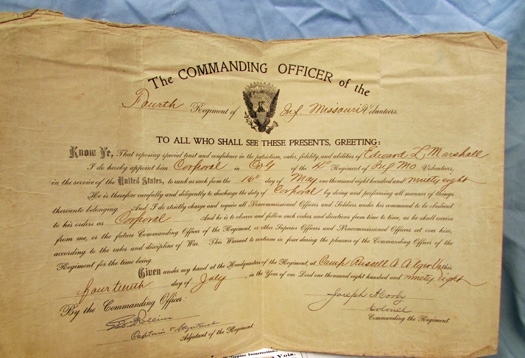 The COMMANDING OFFICER of the
Fourth Regiment of Inf Missouri Volunteers.
TO ALL WHO SHALL SEE THESE PRESENTS, GREETING:
Know Ye, That reposing special trust and confidence in the patriotism, valor, fidelity, and abilities of Edward L Marshall
I do hereby appoint him Corporal in Co G of the 4" Regiment of Inf Mo Volunteers,
in the service of the United States, to rank as such from the 16th day of May one thousand eight hundred and ninety eight
He is therefore carefully and diligently to discharge the duty of Corporal by doing and performing all manner of things
thereunto belonging. And I do strictly charge and require all Noncommissioned Officers and Soldiers under his command to be obedient
to his orders as Corporal And he is to observe and follow such orders and directions from time to time, as he shall receive
from me, or the future Commanding Officer of the Regiment, or other Superior Officers and Noncommissioned Officers set over him,
according to the rules and discipline of War. This Warrant to continue in force during the pleasure of the Commanding Officer of the
Regiment for the time being.
Given under my hand at the Headquarters of the Regiment, at Camp Russell A. Alger Va this
fourteenth day of July in the Year of our Lord one thousand eight hundred and ninety eight
By the Commanding Officer
Joseph A Corby
Colonel
Commanding the Regiment
Captain & Adjutant
Adjutant of the Regiment